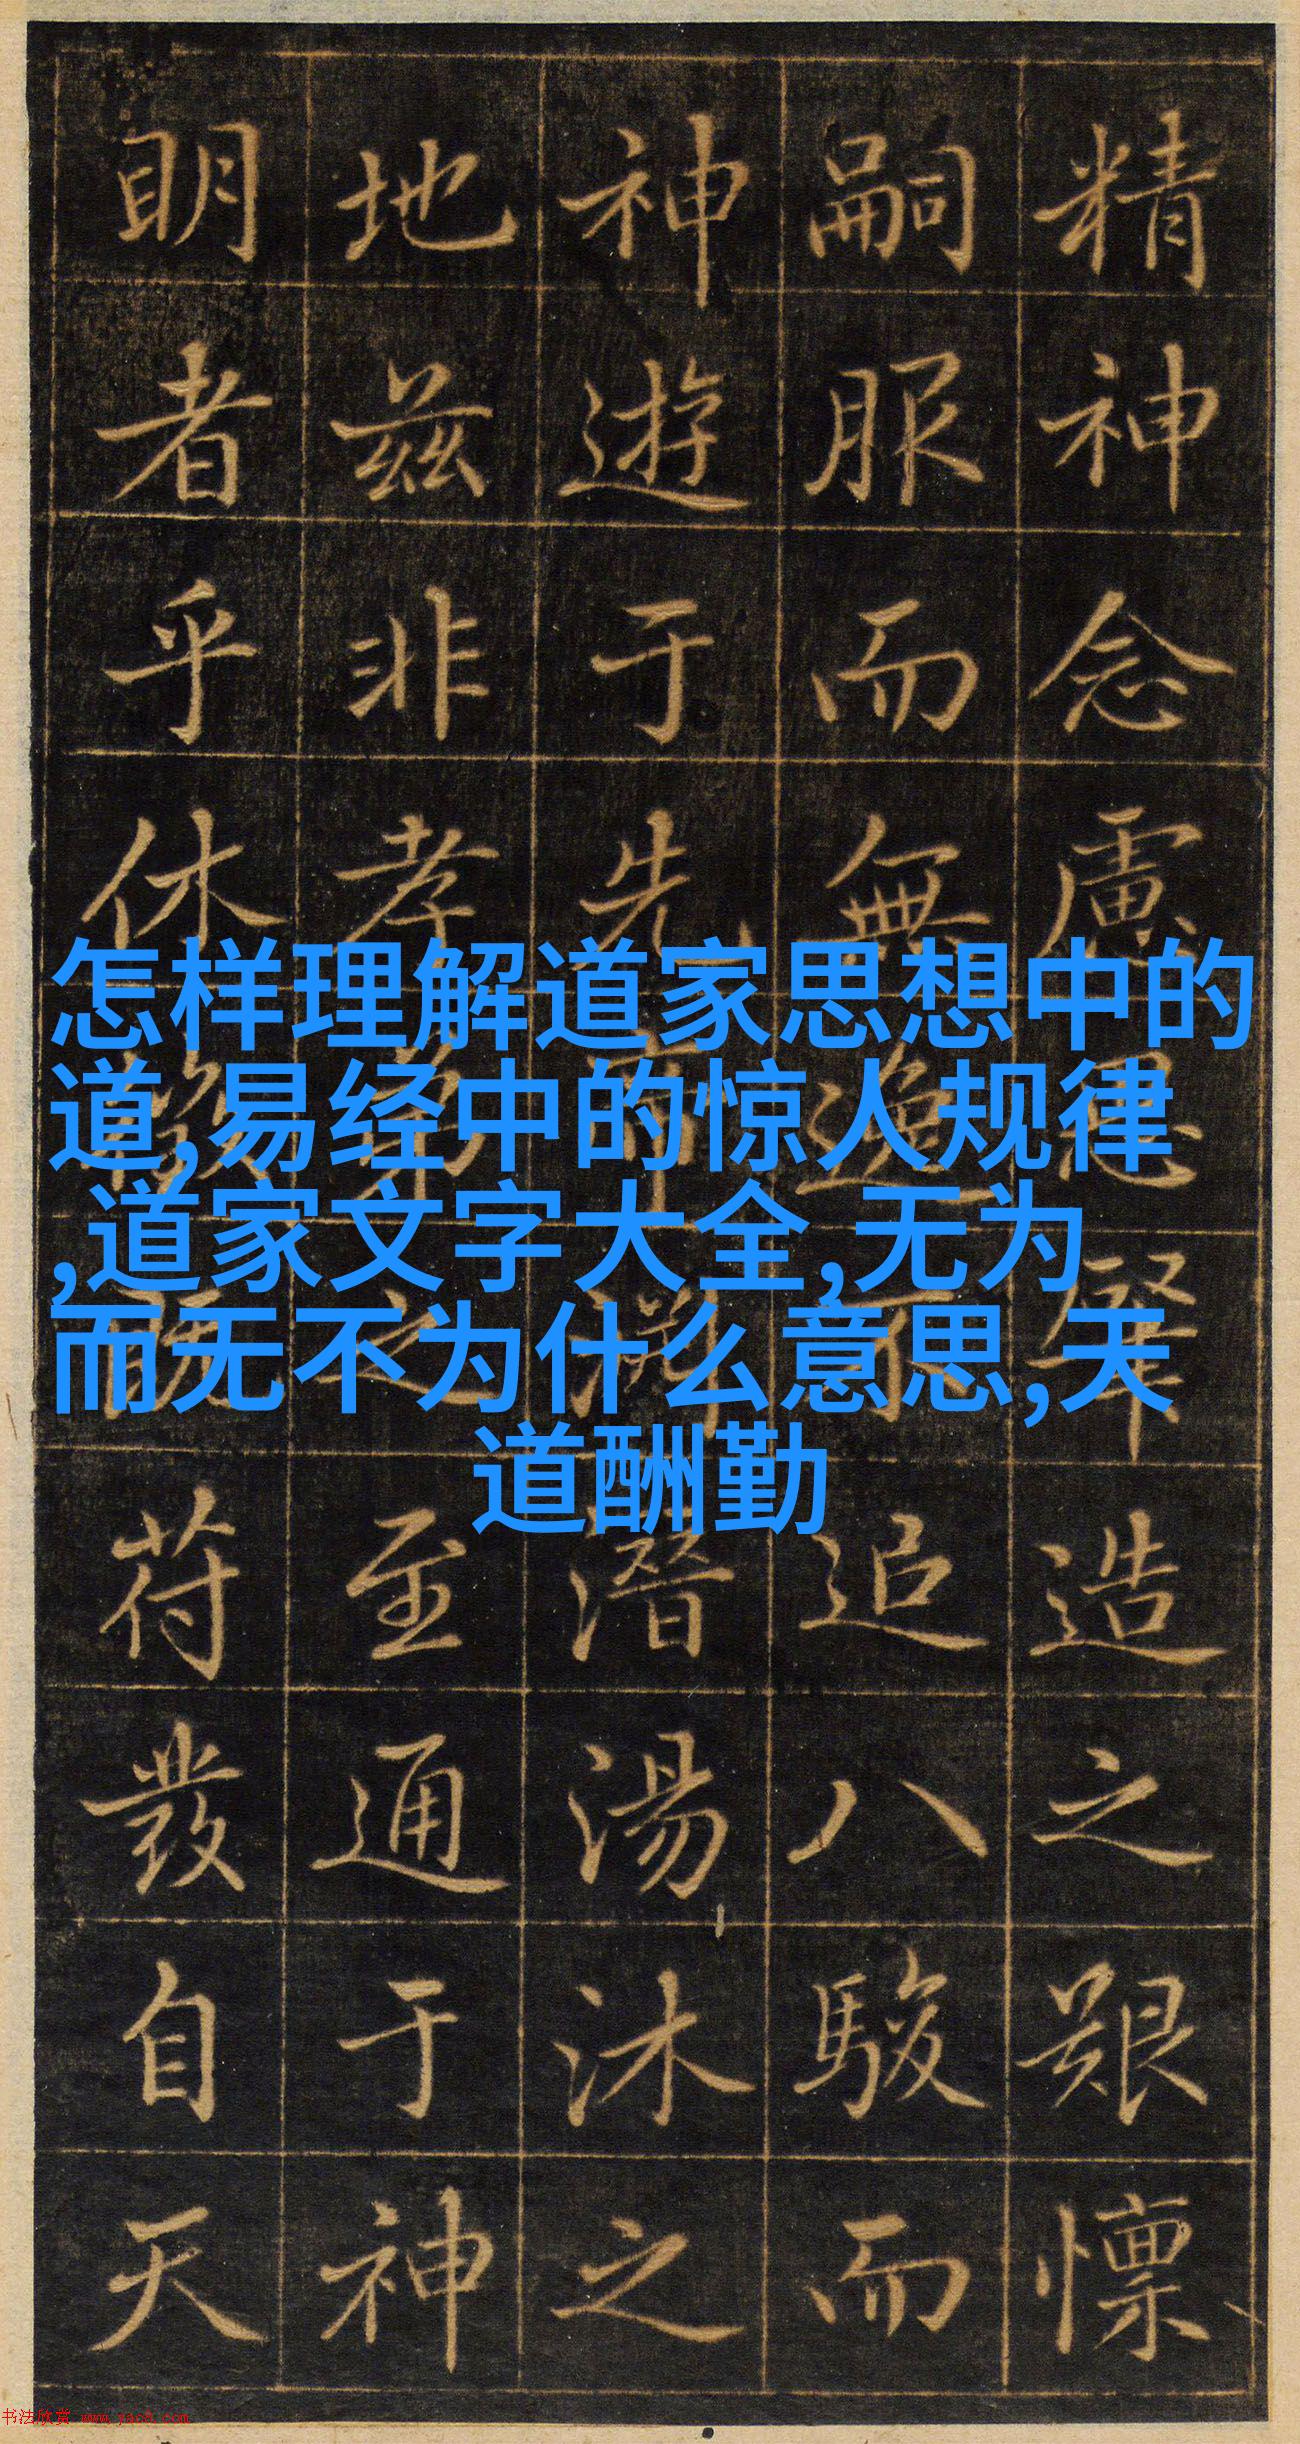 精神念慮思肇造之艱懍
嗣服而無逸不追八駿而
神遊于先潛湯沐之
地兹非孝弟之至通于神
明者乎休苻發自天
怎样理解道家思想中的
道,易经中的惊人规律
,道家文字大全,无为
而无不为什么意思,天
道酬勤
书法欣赏 www.yac8.com